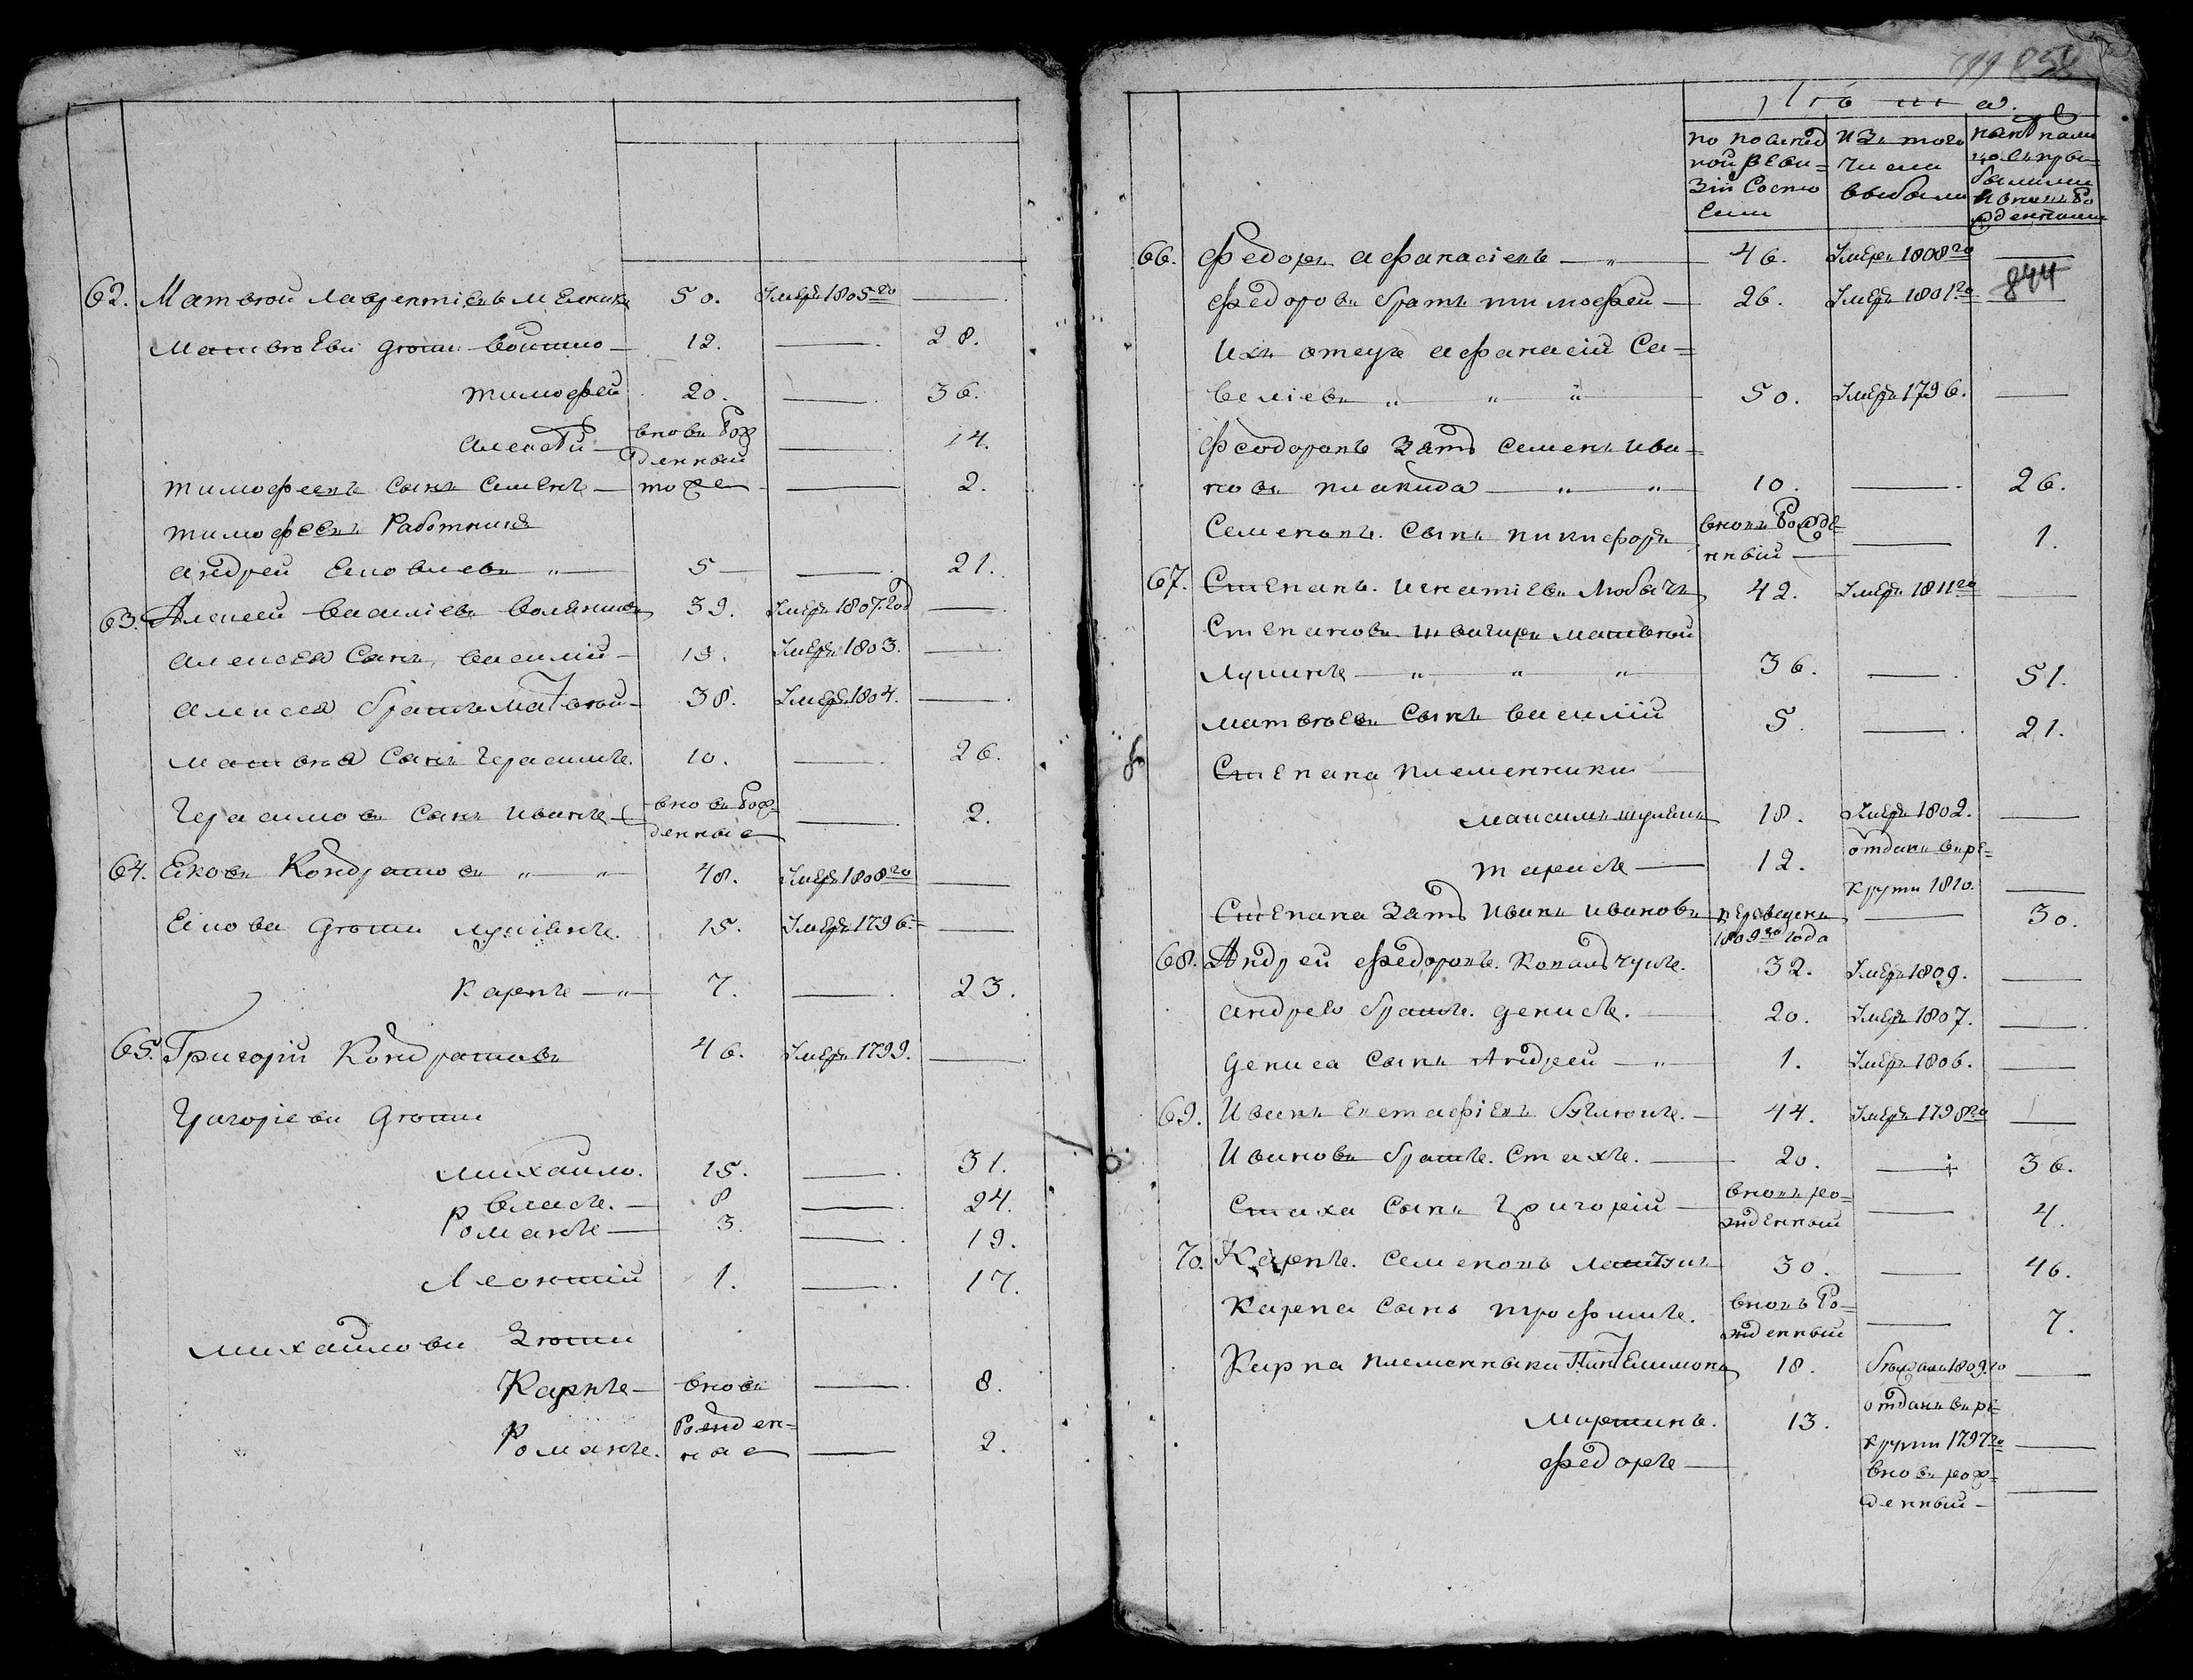 62. Матвей Лаврентіевъ Мелникъ 50. Умеръ 1805го —
Матвеевы дети Войтко — 12. — 28.
Тимофей 20. — 36.
Алексей — вновь рож- — 14.
денный
Тимофеевъ сынъ Семенъ — тоже — — 2.
Тимофеевъ работникъ
Андрей Ековлевъ „ — 5 — — 21.
63. Алексей Василіевъ 39. Умеръ 1807го —
Алексея сынъ, Василій — 15. Умеръ 1803. —
Алексея братъ Матвей — 38. Умеръ 1804. —
Матвея сынъ Герасимъ. 10. — 26.
Герасимовъ сынъ Иванъ — вновь рож- — 2.
денные
64.Ековъ Кондратовъ „ „ 48. Умеръ 1808го —
Екова дети Лукіянъ. 15. Умеръ 1796. —
Карпъ — „ 7. — 23.
65. Григорій Кондратовъ 46. Умеръ 1799. —
Григоріевы дети
Михайло. 15. — 31.
Власъ. — 8 — 24.
Романъ — 3. — 19.
Леонтій 1. — 17.
Михайловы дети
Карпъ — вновь — 8.
Романъ. рожден- — 2.
ные
Лѣта.
по послед- изъ того ныне
ной реви- числа
зіи состо- выбыло
яли
66. Федоръ Афанасіевъ — „ — 46. Умеръ 1808го —
844
Федоровъ братъ Тимофей — 26. Умеръ 1801го —
Ихъ отецъ Афанасій Са-
веліевъ „ „ „ — 50. Умеръ 1796. —
Феодоровъ зять Семенъ Ива-
новъ Плакида — „ — „ 10. — 26.
Семеновъ. сынъ Никифоръ вновь рожде- — 1.
нный —
67. Степанъ. Игнатіевъ Любичъ 42. Умеръ 1811го —
Степановъ швагиръ Матвей
Лущикъ — „ „ „ 36. — 51.
Матвеевъ сынъ Василій 5. — 21.
Степана племенники —
Максимъ 18. Умеръ 1802. —
Тарасъ — 12. отданъ въ ре-
круты 1810. —
Степана зять Иванъ Ивановъ переведенъ — 30.
1809го года
68. Андрей Федоровъ. 32. Умеръ 1809. —
Андрея братъ. Денисъ. — 20. Умеръ 1807. —
Дениса сынъ Андрей — „ 1. Умеръ 1806. —
69. Иванъ Евстафіевъ — 44. Умеръ 1798го —
Ивановъ братъ. Стахъ. — 20. — 36.
Стаха сынъ Григорій — вновь ро- — 4.
жденный
70. Карпъ. Семеновъ 30. — 46.
Карпа сынъ Трофимъ. вновь ро- — 7.
жденный
Карпа племенники 18. 1809го —
Мартинъ. 13. отданъ въ ре-
круты 1797го —
Федоръ — вновь рож-
денный — —